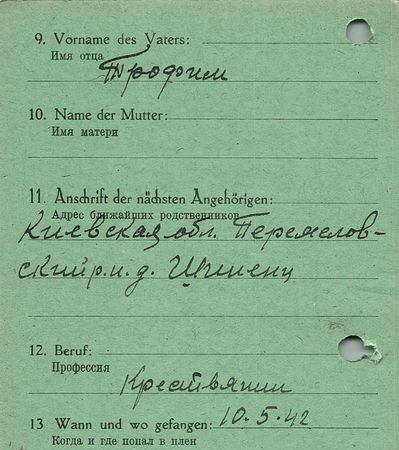 9. Vorname des Vaters:
Имя отца
Трофим
10. Name der Mutter:
Имя матери
11. Anschrift der nächsten Angehörigen:
Адрес ближайших родственников
Киевская обл. Перемелов-
ский р.н. д.
12. Beruf:
Профессия
Крестьянин
13 Wann und wo gefangen: 10.5.42
Когда и где попал в плен